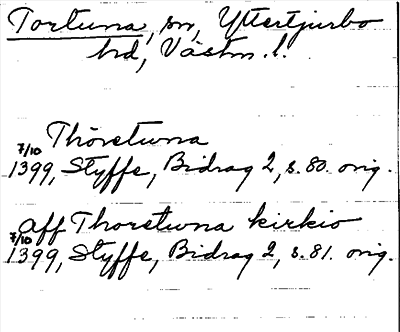 Tortuna, sn, Yttertjurbo
hd, Västm. l.
Thoretuna
7/10 1399, Styffe, Bidrag 2, s. 80. orig.
aff Thoretuna kirkio
7/10 1399, Styffe, Bidrag 2, s. 81. orig.